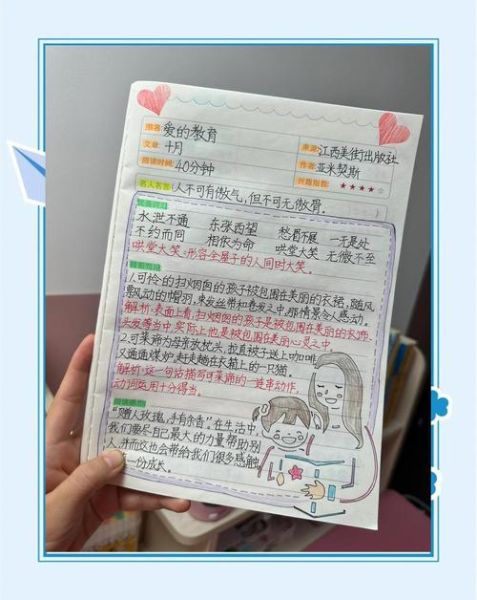 书名: 爱的教育
文章: 十月
来源: 江西美街出版社
阅读时间: 40分钟
作者: 亚米契斯
兴趣指数: ★★★★☆
名人名言: 人不可有傲气,但不可无傲骨。
水泄不通 东张西望 愁眉不展 一无是处
不约而同 相依为命 哄堂大笑 无微不至
哄堂大笑:形容全屋子的人同时大笑。
1.可怜的扫烟囱的孩子被包围在美丽的衣裙,随风
飘动的帽羽,束发丝带和卷发之中,那情景令人感动。
解析:表面上看,扫烟囱的孩子是被包围在美丽的衣饰、
头发等当中,实际上他是被包围在美丽心灵之中。
2.可莱谛为母亲放枕头,拉直被子送上咖啡,
又通通煤炉,赶走趟在衣箱上的一只猫。
解析:这一句话描写可莱谛的一连串动作,
动词运用十分得当。
“赠人玫瑰,手有余香”,在生活中,
我们要尽自己最大的力量帮助别
人,并而这也会带给我们很多感触
一份成长。